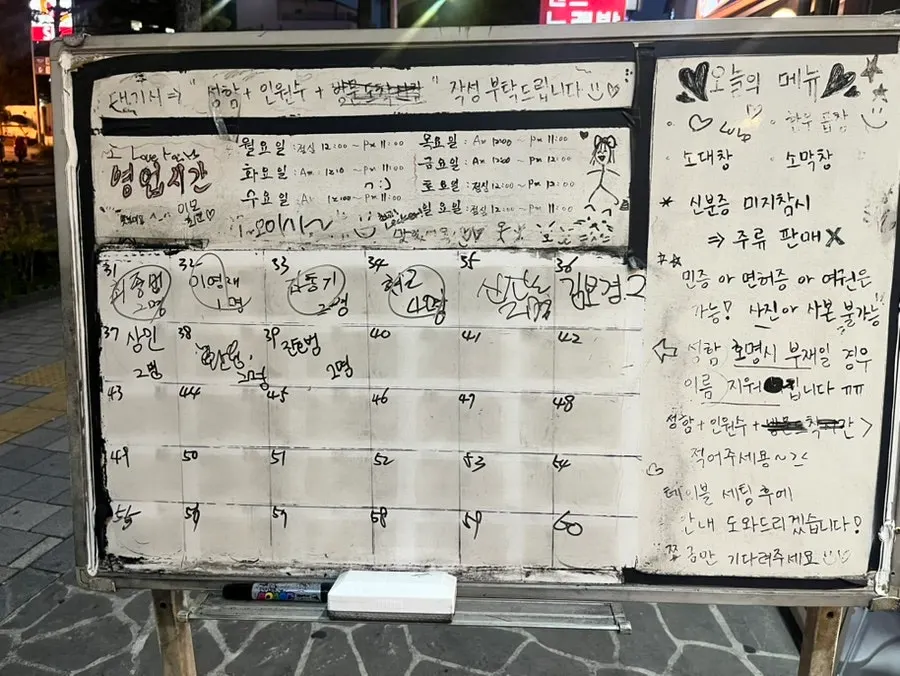 대기시 ⇒ " 성함 + 인원수 + " 작성 부탁드립니다
영업시간
월요일 : 점심 12:00 ~ PM 11:00
화요일
~ PM 11:00
수요일
~ PM 11:00
목요일
~ PM 11:00
금요일
~ PM 12:00
토요일 : 점심 12:00 ~ PM 12:00
월요일 : 점심 12:00 ~ PM 11:00
31
2명
32 이영재
1명
33
2명
34
4명
35
2명
36 김보겸.2
37 상민
2명
38
2명
39
2명
40
41
42
43
44
45
46
47
48
49
50
51
52
53
54
55
56
57
58
59
60
오늘의 메뉴
한우 곱창
소대창
소막창
* 신분증 미지참시
⇒ 주류 판매 X
민증 or 면허증 or 여권은
가능! 사진 or 사본 불가능
성함 호명시 부재일 경우
이름 지워 집니다 ㅠㅠ
성함 + 인원수 +
적어주세용~><
테이블 세팅 후에
안내 도와드리겠습니다!
쪼금만 기다려주세요